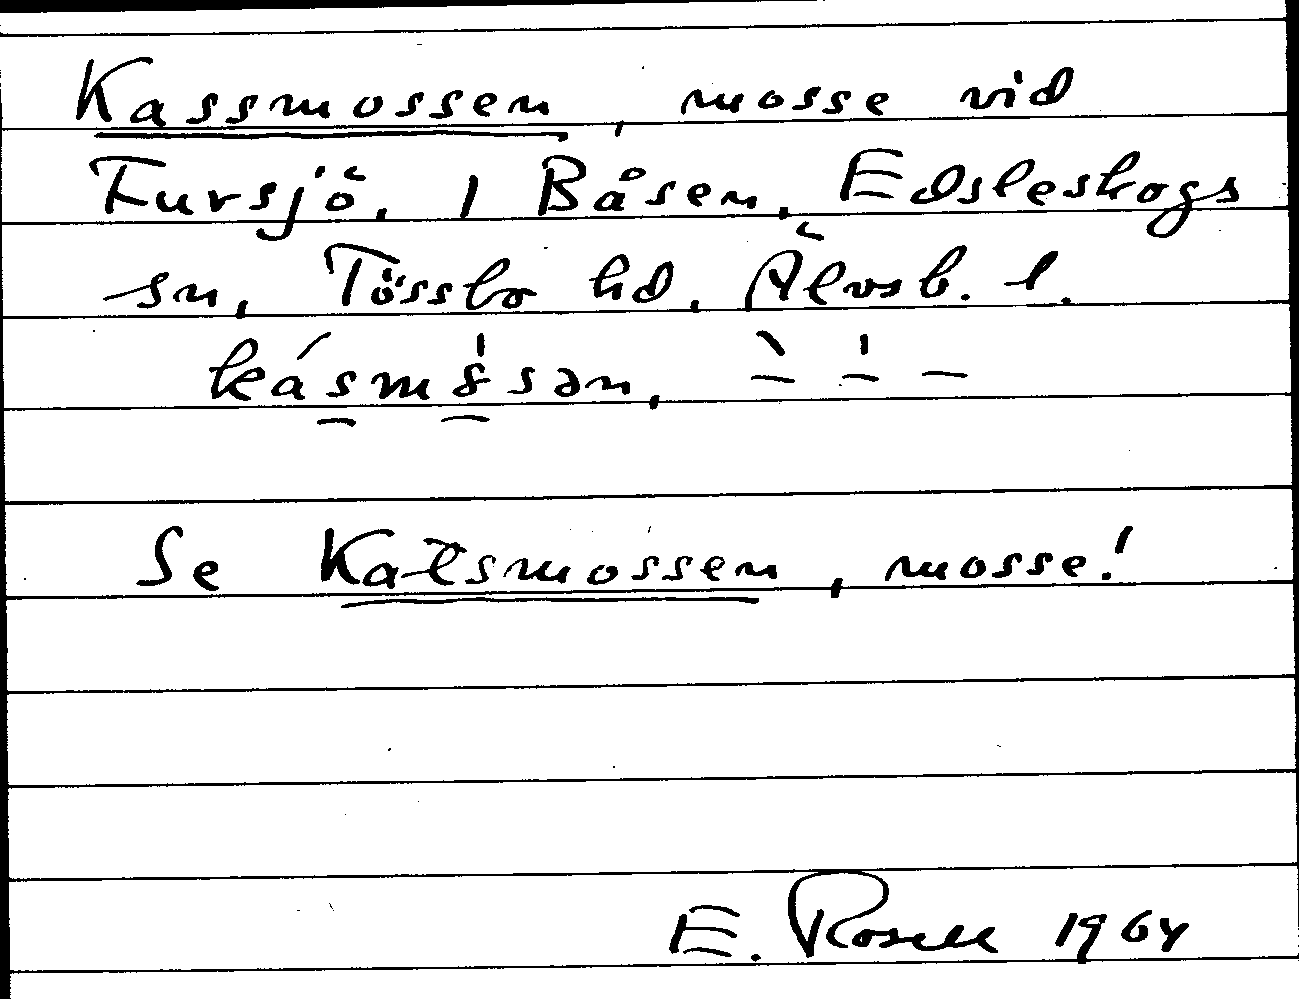 Kassmossen, mosse vid
Fursjö. 1 Båsen, Edsleskogs
sn, Tössbo hd, Älvsb. l.
kásmösən, ` ' –
Se Katsmossen, mosse!
E. Rosell 1964